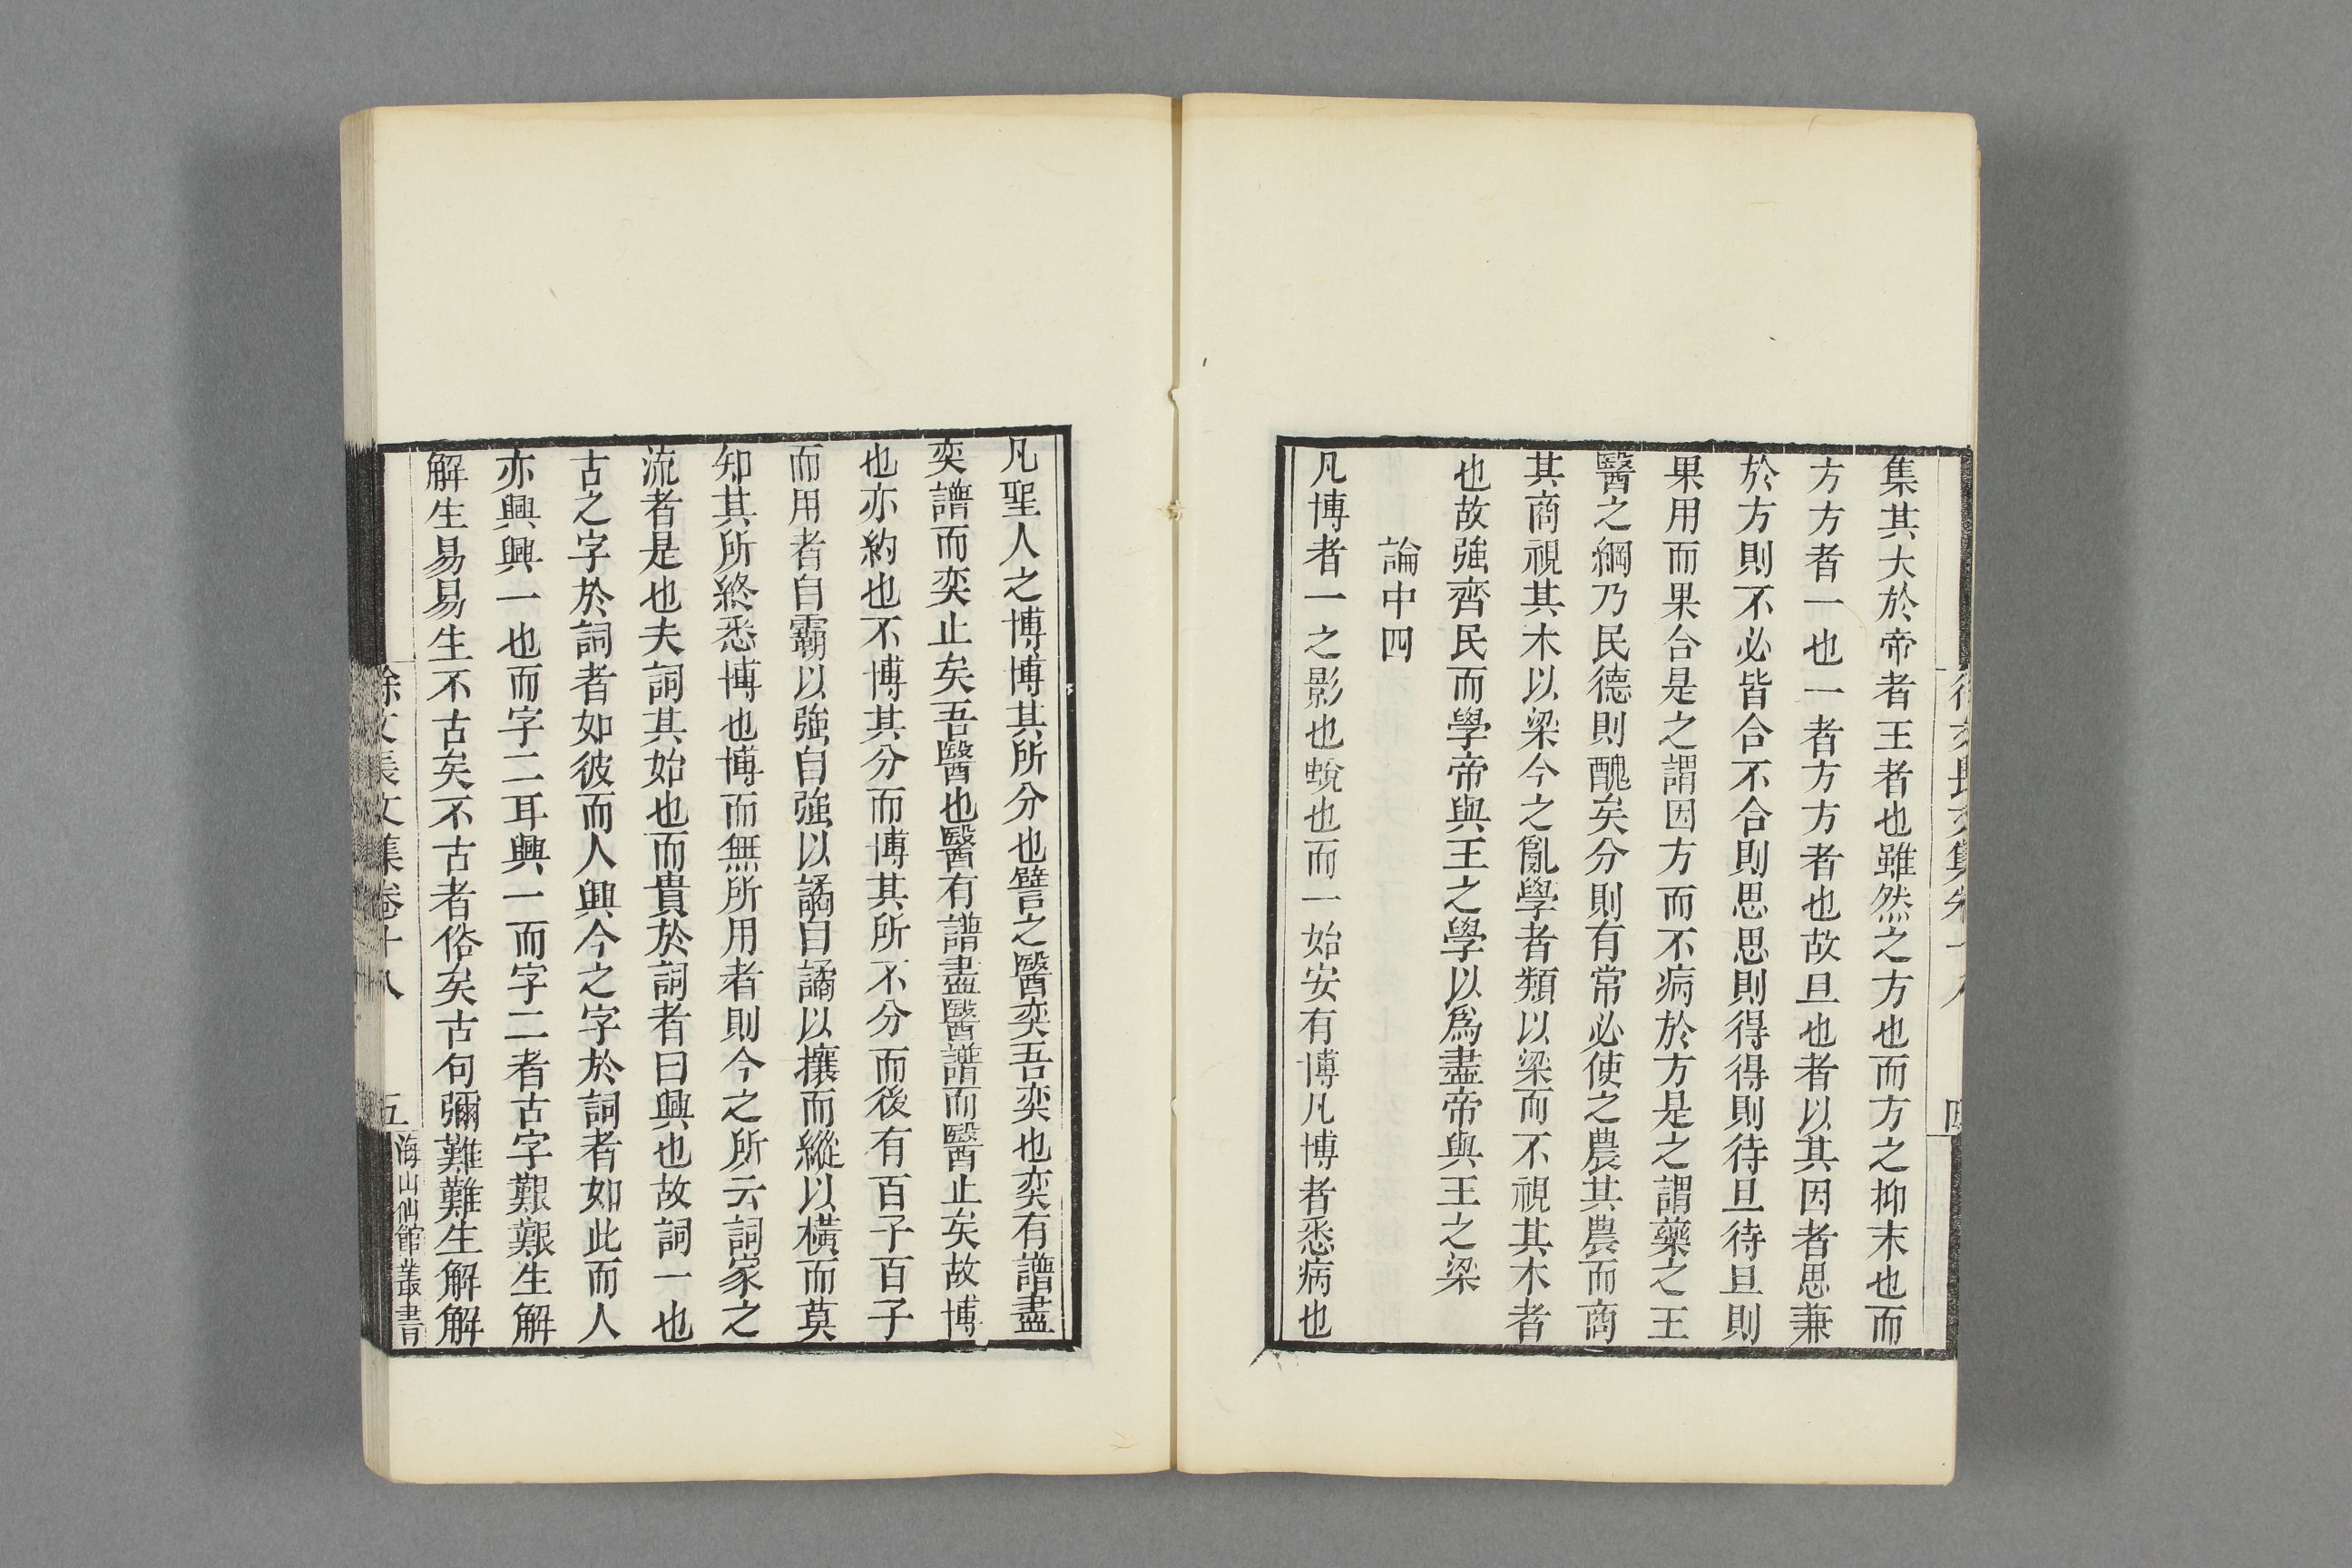 集其大於帝者王者也雖然之方也而方之抑末也而
方方者一也一者方方者也故旦也者以其因者思兼
於方則不必皆合不合則思思則得得則待旦待旦則
果用而果合是之謂因方而不病於方是之謂藥之王
醫之綱乃民德則醜矣分則有常必使之農其農而商
其商視其木以梁今之亂學者類以梁而不視其木者
也故強齊民而學帝與王之學以爲盡帝與王之梁
論中四
凡博者一之影也蛻也而一始安有博凡博者悉病也
凡聖人之博博其所分也譬之醫奕吾奕也奕有譜盡
奕譜而奕止矣吾醫也醫有譜盡醫譜而醫止矣故博
也亦約也不博其分而博其所不分而後有百子百子
而用者自霸以強自強以譎自譎以攘而縱以橫而莫
知其所終悉博也博而無所用者則今之所云詞家之
流者是也夫詞其始也而貴於詞者曰興也故詞一也
古之字於詞者如彼而人興今之字於詞者如此而人
亦興興一也而字二耳興一而字二者古字艱艱生解
解生易易生不古矣不古者俗矣古句彌難難生解解
徐文長文集卷十八
五
海山仙館叢書